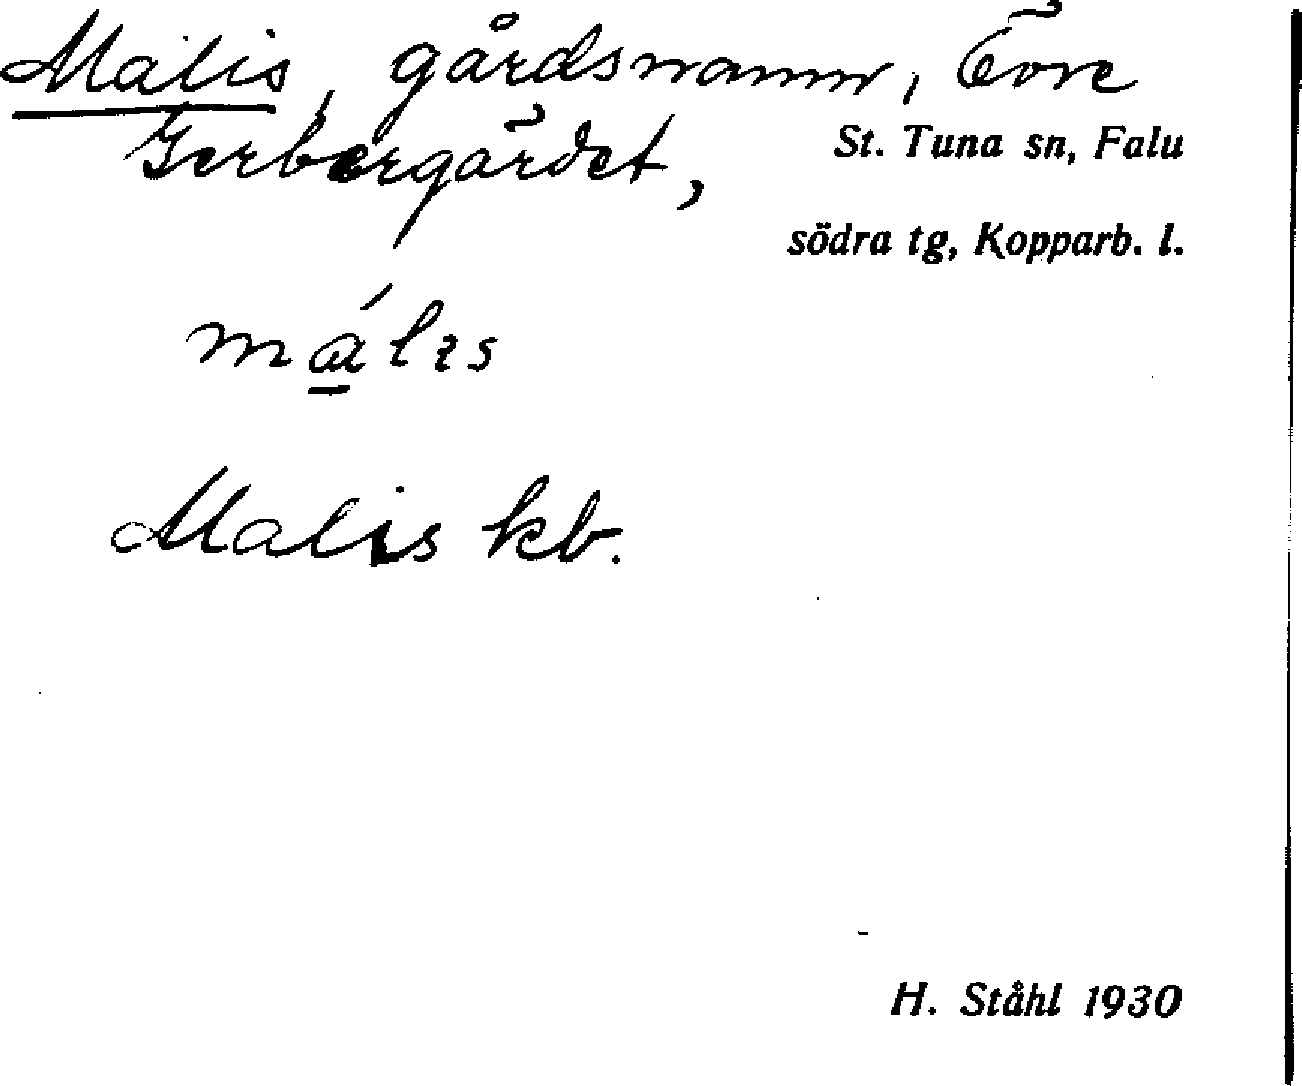 Malis, gårdsnamn, Övre
Gerbergärdet,
St. Tuna sn, Falu
södra tg, Kopparb. l.
má̱lıs
Malis kb.
H. Ståhl 1930